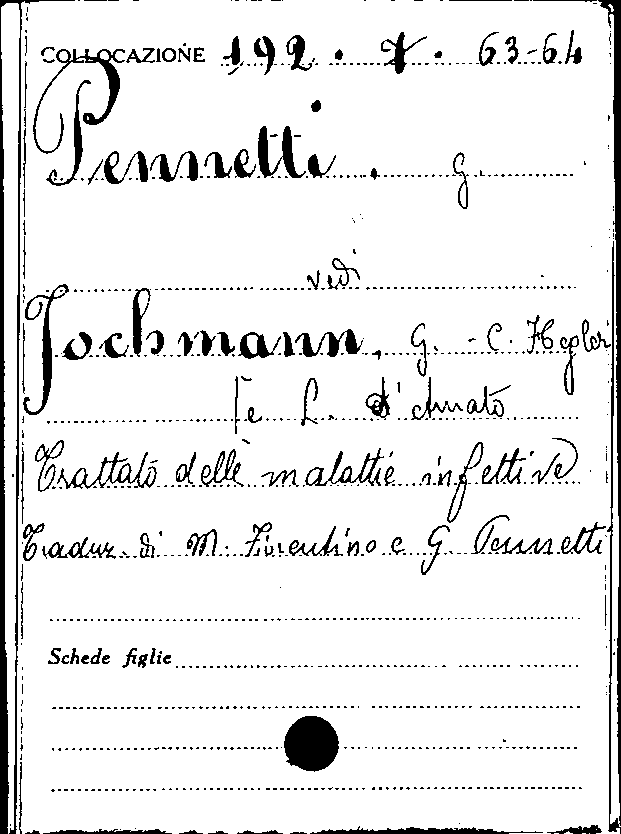 COLLOCAZIONE 192. 7. 63-64
Pennetti. G.
vedi
Jochmann, G. - C. Hegler
e L. D'Amato
Trattato delle malattie infettive
Traduz. di M. Fiorentino e G. Pennetti
Schede figlie